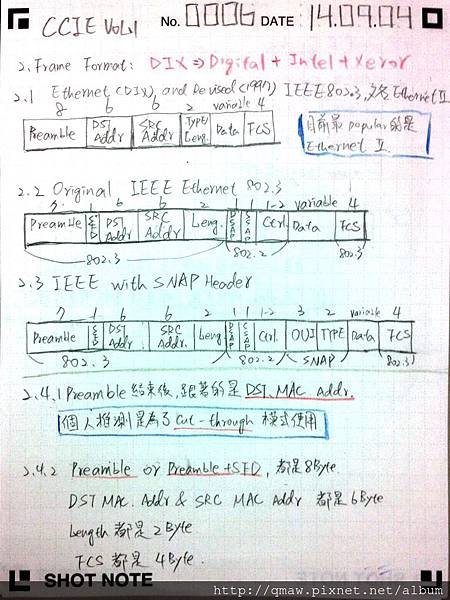 CCIE Vol.1 No. 0006 DATE 14.09.04
2. Frame Format: DIX ⇒ Digital + Intel + Xeror
2.1 Ethernet (DIX), and Revised (1997) IEEE802.3, 又名 Ethernet II
8 6 6 2 variable 4
Preamble DST Addr SRC Addr Type/Leng. Data FCS
目前最 popular 的是 Ethernet II
2.2 Original IEEE Ethernet 802.3
7 1 6 6 2 1 1 1-2 variable 4
Preamble SFD DST Addr SRC Addr Leng. DSAP SSAP Ctrl. Data FCS
802.3 802.2 802.3
2.3 IEEE with SNAP Header
7 1 6 6 2 1 1 1-2 3 2 variable 4
Preamble SFD DST Addr. SRC Addr. Leng DSAP SSAP Ctrl. OUI TYPE Data FCS
802.3 802.2 SNAP 802.3
2.4.1 Preamble 結束後, 跟著的是 DST. MAC. Addr.
個人推測是為了 Cut-through 模式使用
2.4.2 Preamble or Preamble+SFD, 都是8Byte.
DST MAC. Addr & SRC MAC Addr 都是6Byte
Length 都是2Byte
FCS 都是 4Byte.
SHOT NOTE
http://qmaw.pixnet.net/album